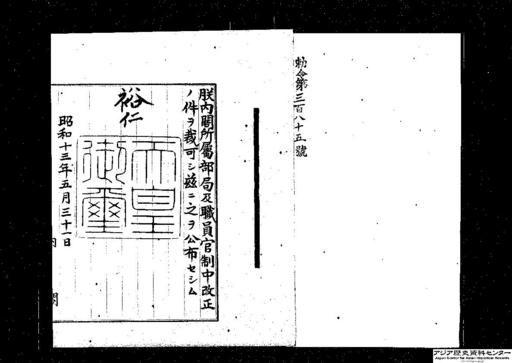 勅令第三百八十五號
朕內閣所屬部局及職員官制中改正
ノ件ヲ裁可シ茲ニ之ヲ公布セシム
裕仁
天皇
御璽
昭和十三年五月三十一日
內閣
アジア歴史資料センター
Japan Center for Asian Historical Records